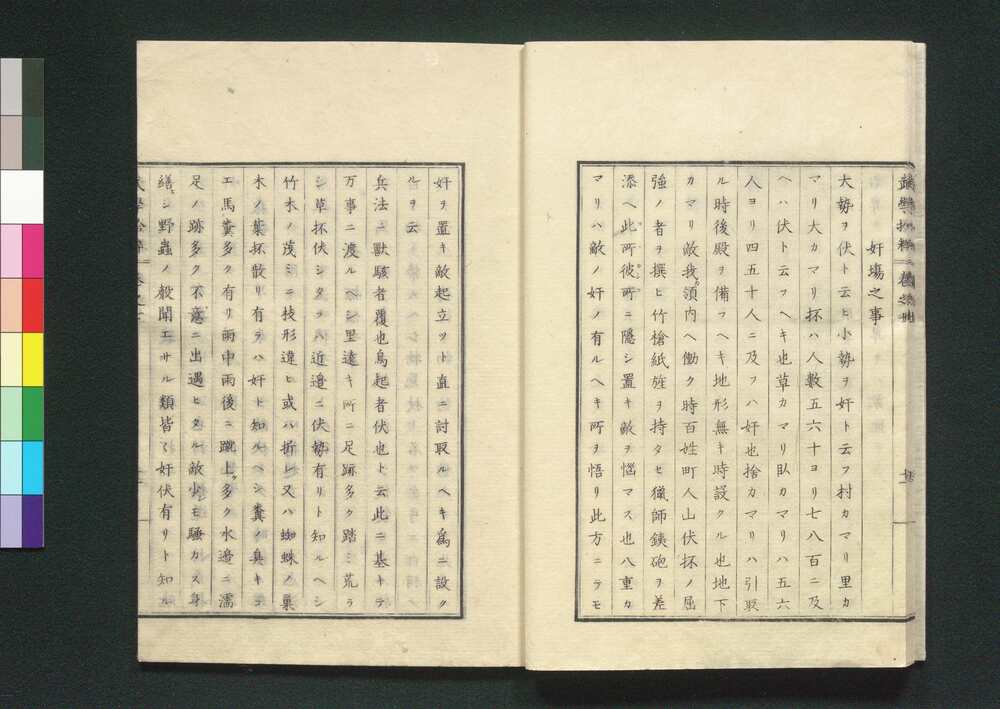 奸塲之事
大勢ヲ伏ト云ヒ小勢ヲ奸ト云フ村カマリ里カ
マリ大カマリ抔ハ人數五六十ヨリ七八百ニ及
ヘハ伏ト云フヘキ也草カマリ臥カマリハ五六
人ヨリ四五十人ニ及フハ奸也捨カマリハ引取
ル時後殿ヲ備フヘキ地形無キ時設クル也地下
カマリ敵我領内ヘ働ク時百姓町人山伏抔ノ屈
強ノ者ヲ撰ヒ竹槍紙旌ヲ持タセ獵師銕砲ヲ差
添ヘ此所彼所ニ隱シ置キ敵ヲ惱マス也八重カ
マリハ敵ノ奸ノ有ルヘキ所ヲ悟リ此方ニテモ
奸ヲ置キ敵起立ツト直ニ討取ルヘキ爲ニ設ク
ルヲ云
兵法ニ獸駭者覆也鳥起者伏也ト云此ニ基キテ
万事ニ渡ルヘシ里遠キ所ニ足跡多ク踏ミ荒ラ
シ草抔伏シタラハ近邉ニ伏勢有リト知ルヘシ
竹木ノ茂ミニ枝形違ヒ或ハ折レ又ハ蜘蛛ノ巢
木ノ葉抔散リ有ラハ奸ト知ルヘシ糞ノ臭キコ
エ馬糞多ク有リ雨中雨後ニ蹴上多ク水邉ニ濡
足ノ跡多ク不意ニ出遇ヒタル敵少シモ騷カス身
繕シ野蟲ノ聲聞エサル類皆々奸伏有リト知ル